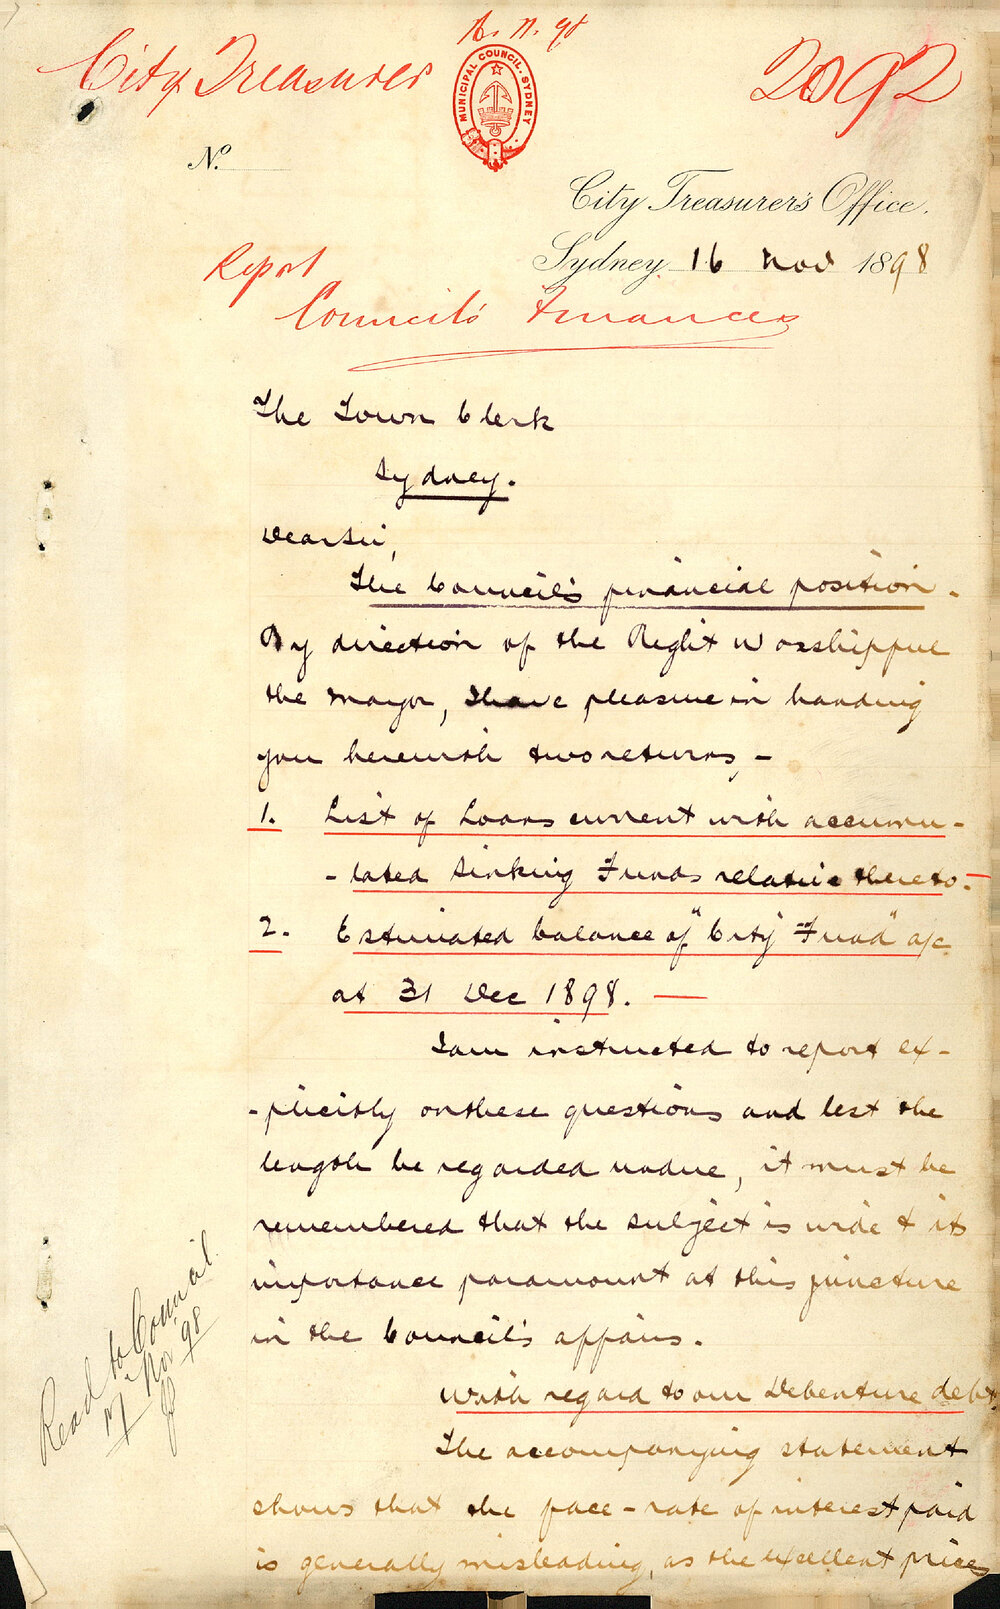 City Treasurer
2092
MUNICIPAL COUNCIL. SYDNEY
No.
City Treasurer's Office.
Sydney 16 Nov 1898
Report
Council's Finances
The Town Clerk
Sydney.
Dear Sir,
The Council's financial position.
By direction of the Right Worshipful
the Mayor, I have pleasure in handing
you herewith two returns, -
1. List of Loans current with accumu-
- lated Sinking Funds relative thereto. -
2. Estimated balance of "City Fund" a/c
at 31 Dec 1898. —
I am instructed to report ex-
- plicitly on these questions and lest the
length be regarded undue, it must be
remembered that the subject is wide & its
importance paramount at this juncture
in the Council's affairs.
With regard to our Debenture debt.
The accompanying statement
shows that the face - rate of interest paid
is generally misleading, as the excellent prices
Read to Council
17 Nov 98